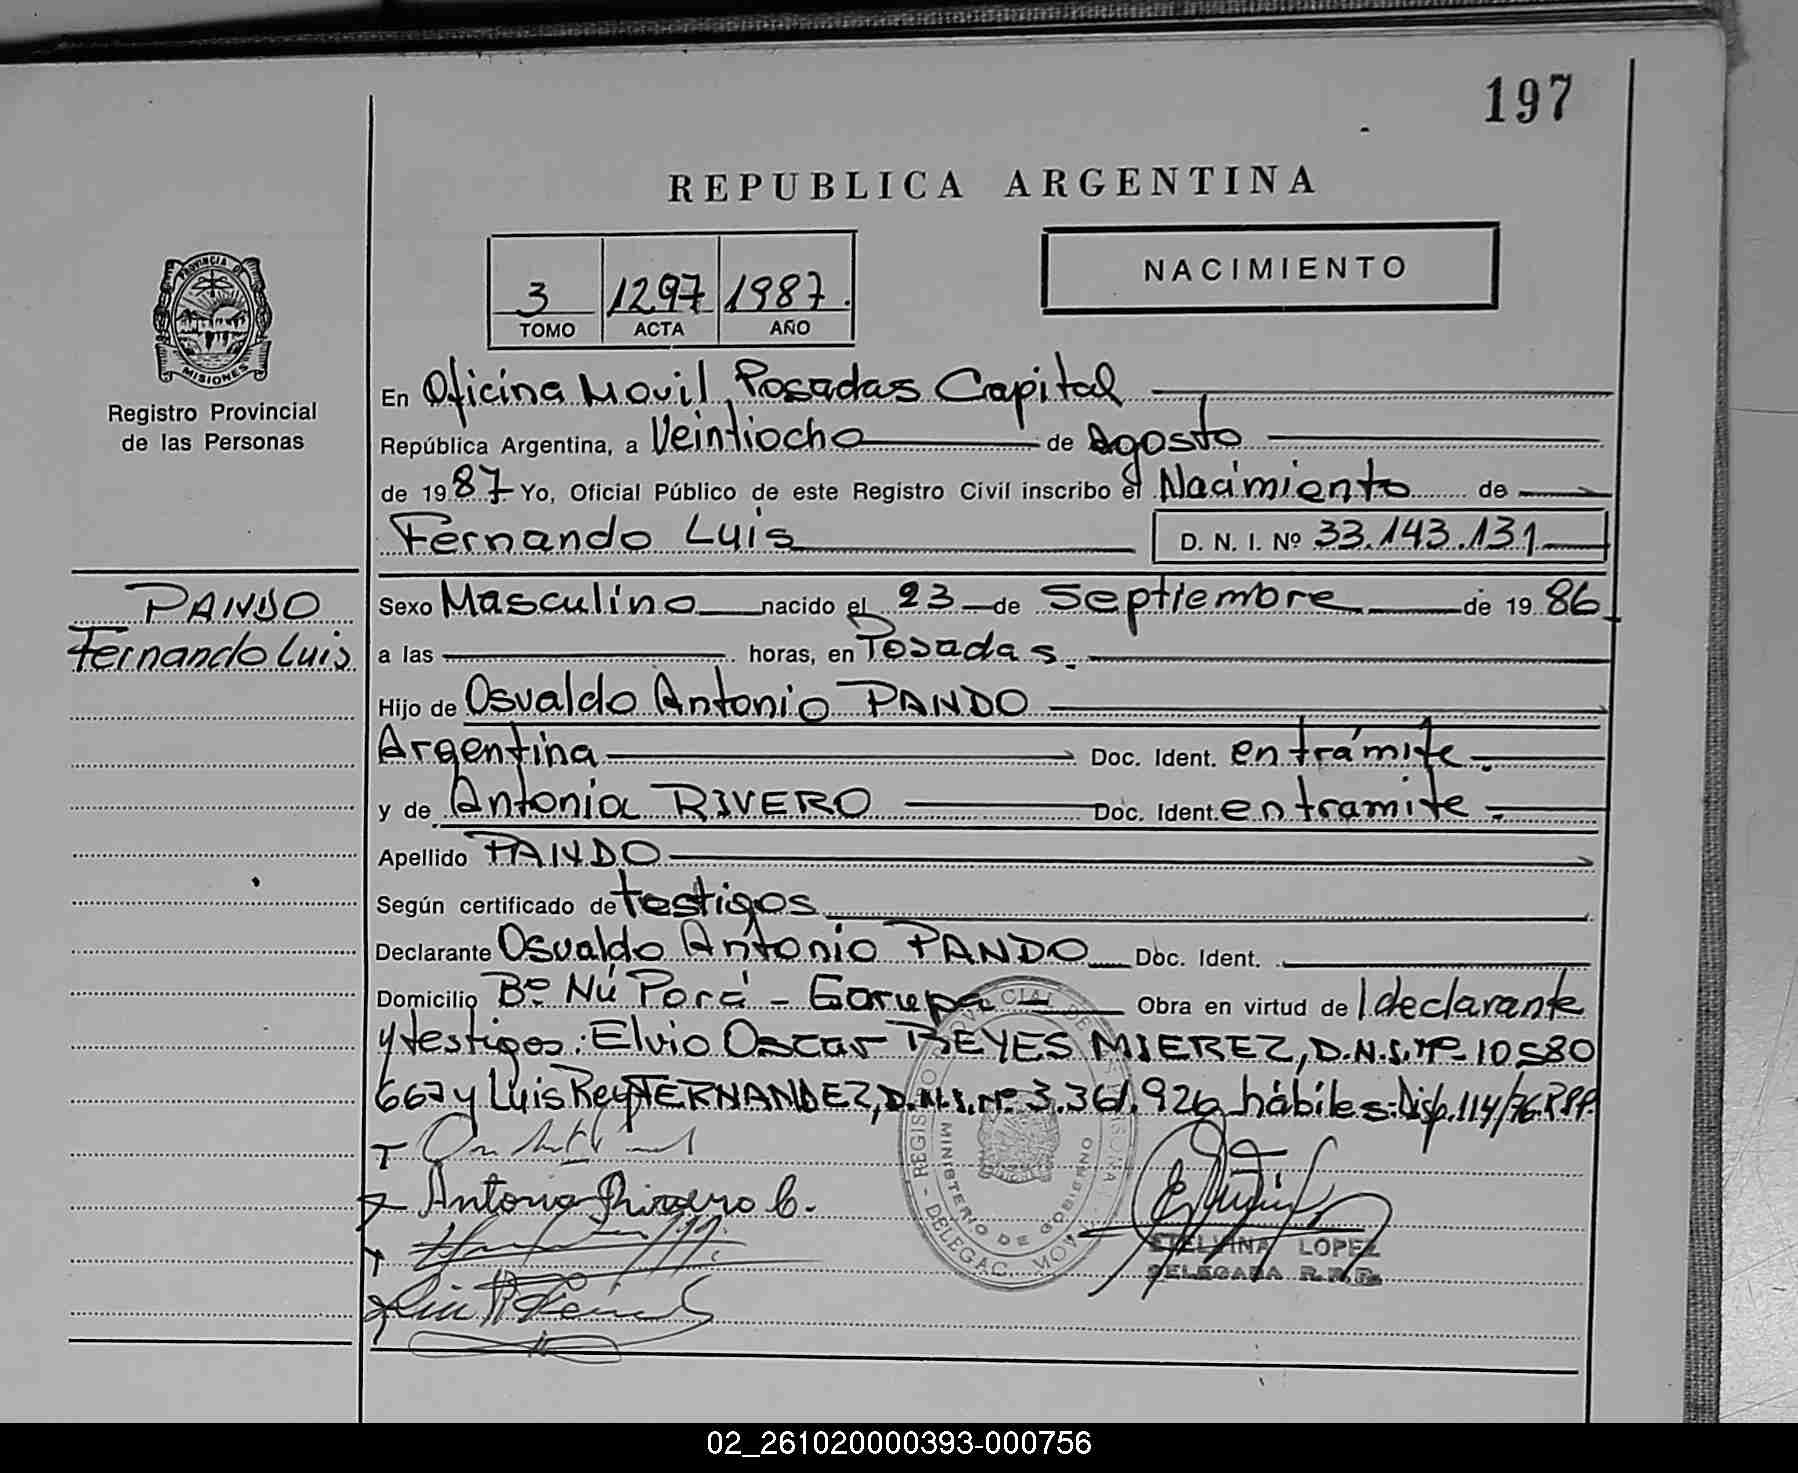 197
REPUBLICA ARGENTINA
3 1297 1987.
TOMO ACTA AÑO
NACIMIENTO
PROVINCIA DE
MISIONES
Registro Provincial
de las Personas
En Oficina Movil Posadas Capital
República Argentina, a Veintiocho de Agosto
de 1987 Yo, Oficial Público de este Registro Civil inscribo el Nacimiento de
Fernando Luis D. N. I. Nº 33.143.131
PANDO
Fernando Luis
Sexo Masculino nacido el 23 de Septiembre de 1986
a las horas, en Posadas.
Hijo de Osvaldo Antonio PANDO
Argentina Doc. Ident. en trámite.
y de Antonia RIVERO Doc. Ident. en tramite.
Apellido PANDO
Según certificado de testigos
Declarante Osvaldo Antonio PANDO Doc. Ident.
Domicilio Bº Nú Porá - Garupa Obra en virtud de l declarante
y testigos: Elvio Oscar REYES MIEREZ, D.N.I. Nº 10.580
667 y Luis Rey FERNANDEZ, D.N.I. Nº 3.361.926 hábiles. Disp. 114/76. R.P.P.
Antonia Rivero C.
MINISTERIO DE GOBIERNO
ETELVINA LOPEZ
DELEGADA R.P.P.
02_261020000393-000756